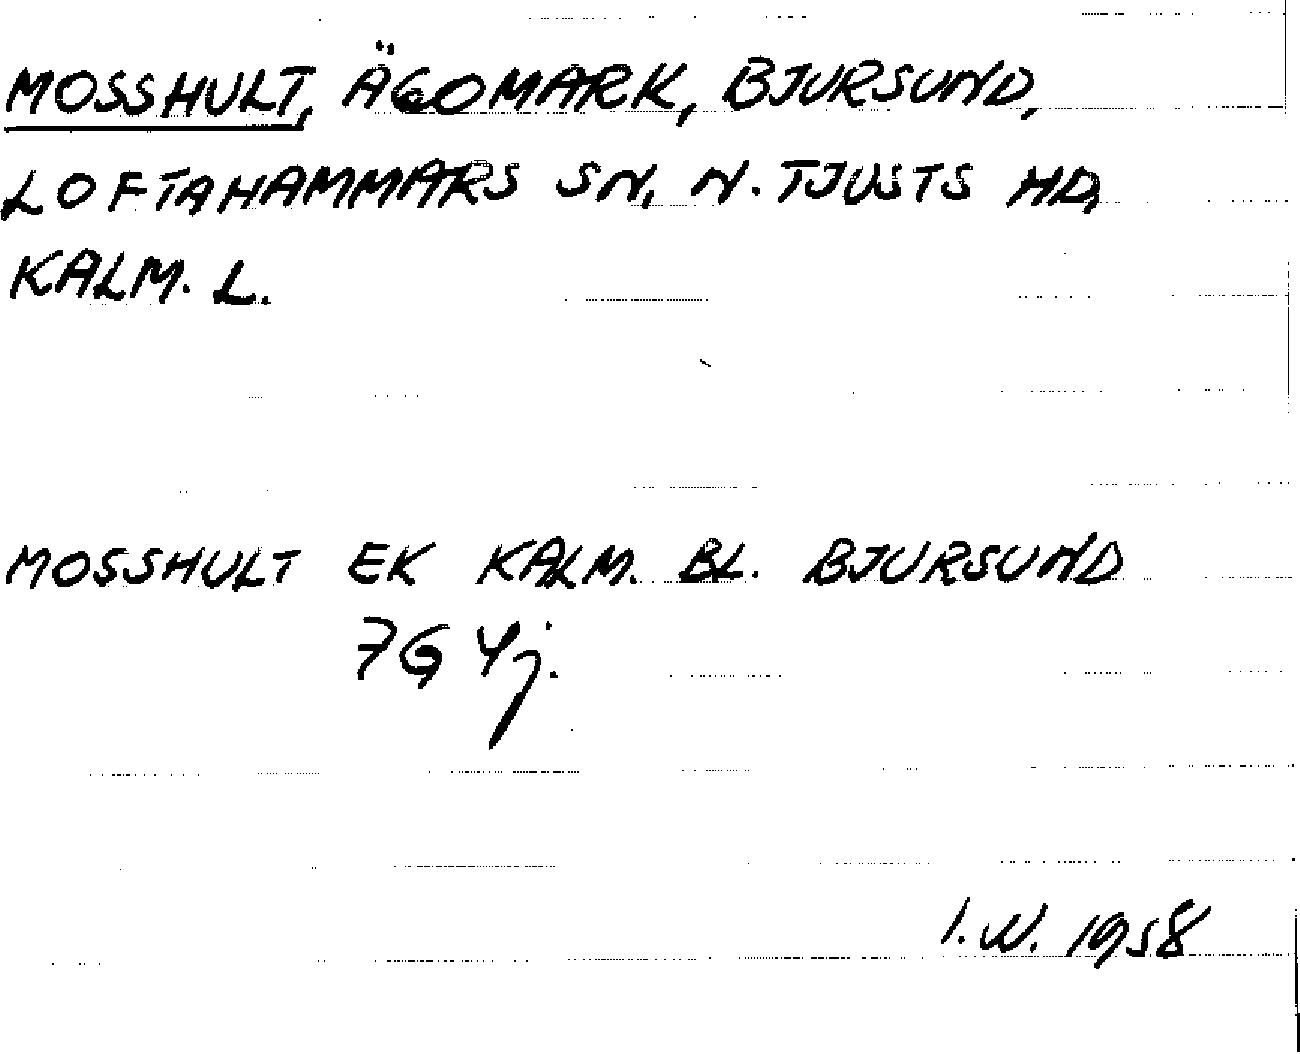 MOSSHULT, ÄGOMARK, BJURSUND,
LOFTAHAMMARS SN, N. TJUSTS HD,
KALM. L.
MOSSHULT EK KALM. BL. BJURSUND
7G 4j.
I.W. 1958